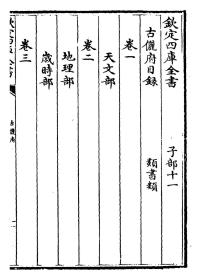 欽定四庫全書 子部十一
古儷府目録 類書類
卷一
天文部
卷二
地理部
歲時部
卷三